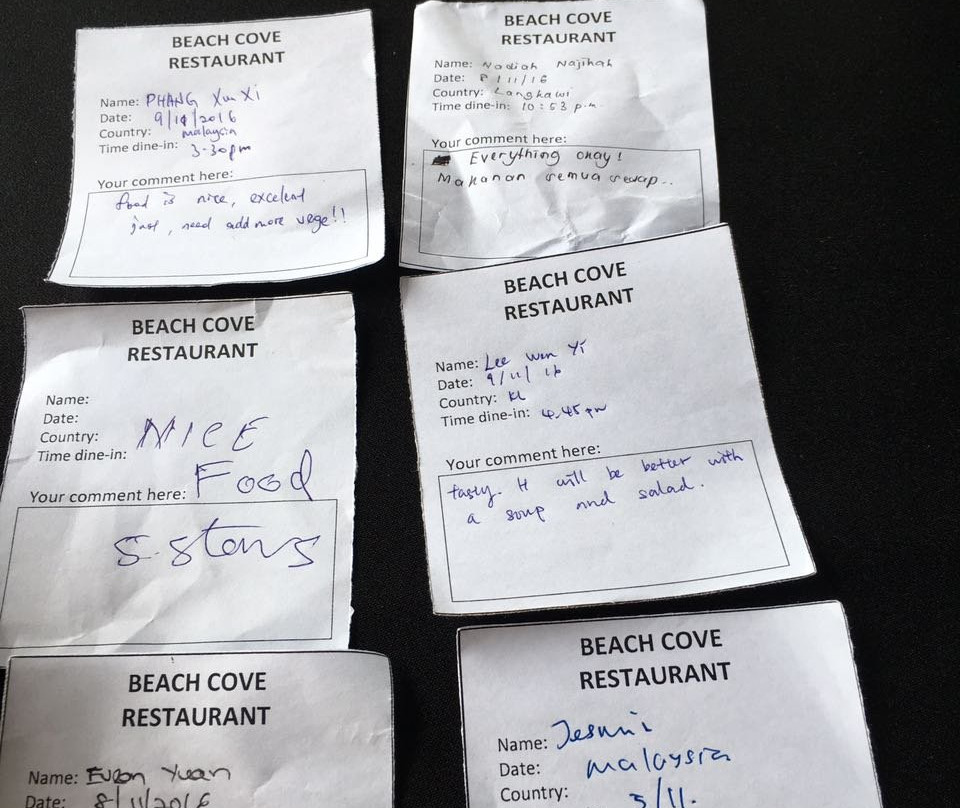 BEACH COVE
RESTAURANT
Name: PHANG Xun Xi
Date: 9/11/2016
Country: malaysia
Time dine-in: 3.30pm
Your comment here:
food is nice, excelent
just, need add more vege!!
BEACH COVE
RESTAURANT
Name: Nadiah Najihah
Date: 8/11/16
Country: Langkawi
Time dine-in: 10:53 p.m
Your comment here:
Everything okay!
Makanan semua sedap..
BEACH COVE
RESTAURANT
Name:
Date:
Country: NICE
Time dine-in:
Food
Your comment here:
5 stars
BEACH COVE
RESTAURANT
Name: Lee Wan Yi
Date: 9/11/16
Country: KL
Time dine-in: 4.45pm
Your comment here:
tasty. It will be better with
a soup and salad.
BEACH COVE
RESTAURANT
Name: Evon Yuan
Date: 8/11/2016
BEACH COVE
RESTAURANT
Name:
Date: malaysia
Country: 3/11.